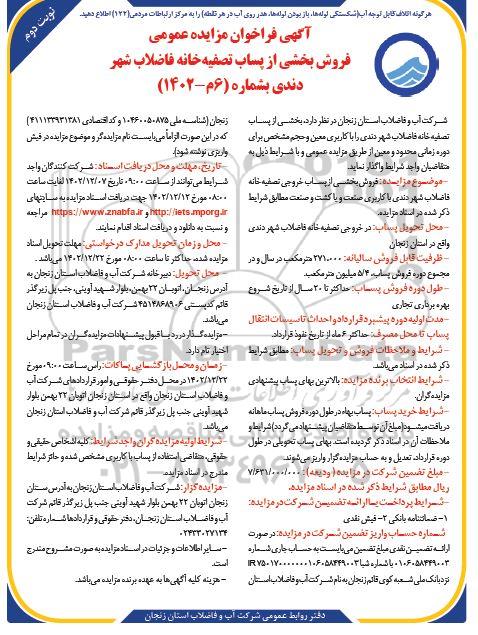 هرگونه اتلاف قابل توجه آب (شکستگی لوله‌ها، باز بودن لوله‌ها، هدر روی آب در هر نقطه) را به مرکز ارتباطات مردمی (۱۲۲) اطلاع دهید.
نوبت دوم
آگهی فراخوان مزایده عمومی
فروش بخشی از پساب تصفیه‌خانه فاضلاب شهر
دندی بشماره (۶م-۱۴۰۲)
شرکت آب و فاضلاب استان زنجان در نظر دارد، بخشی از پساب
تصفیه خانه فاضلاب شهر دندی را با کاربری معین و حجم مشخص برای
دوره زمانی محدود و معین از طریق مزایده عمومی و با شرایط ذیل به
متقاضیان واجد شرایط واگذار نماید.
-موضوع مزایده: فروش بخشی از پساب خروجی تصفیه خانه
فاضلاب شهر دندی با کاربری صنعت و یا کشت و صنعت مطابق شرایط
ذکر شده در اسناد مزایده.
-محل تحویل پساب: در خروجی تصفیه خانه فاضلاب شهر دندی
واقع در استان زنجان
-ظرفیت قابل فروش سالیانه: ۲۷۱.۰۰۰ مترمکعب در سال و در
مجموع دوره فروش پساب، ۵/۴ میلیون مترمکعب.
-طول دوره فروش پساب: حداکثر تا ۲۰ سال از تاریخ شروع
بهره برداری تجاری
-مدت اولیه دوره پیشبرد قرارداد و احداث تاسیسات انتقال
پساب تا محل مصرف: حداکثر ۶ ماه از تاریخ نفوذ قرارداد.
-شرایط و ملاحظات فروش و تحویل پساب: مطابق شرایط
ذکر شده در اسناد می‌باشد.
-شرایط انتخاب برنده مزایده: بالاترین بهای پساب پیشنهادی
مزایده‌گران.
-شرایط خرید پساب: پساب بهاء در طول دوره فروش پساب ماهانه
دریافت میشود (مبلغ آن توسط متقاضیان پیشنهاد می گردد) شرایط و
ملاحظات آن در اسناد ذکر گردیده است. بهای پساب تحویلی در طول
دوره قرارداد، تعدیل و به حساب مزایده گزار واریز می‌شوند.
-مبلغ تضمین شرکت در مزایده (ودیعه): ۷/۶۳۱/۰۰۰/۰۰۰
ریال مطابق شرایط ذکر شده در اسناد مزایده.
-شرایط پرداخت یا ارائه تضمین شرکت در مزایده:
۱- ضمانتنامه بانکی ۲- فیش نقدی
شماره حساب واریز تضمین شرکت در مزایده: در صورت
ارائه تضمین نقدی مبلغ تضمین می‌بایست به حساب جاری شماره
۰۱۰۶۰۵۸۴۴۹۰۰۳ با شماره شبا
نزد بانک ملی شعبه کوی قائم زنجان به نام شرکت آب و فاضلاب استان
زنجان (شناسه ملی ۱۰۴۶۰۰۵۰۸۷۵ و کد اقتصادی ۴۱۱۱۳۳۹۳۱۳۸۱)
که در این صورت الزاماً می‌بایست نام مزایده‌گر و موضوع مزایده در فیش
واریزی نوشته شود).
-تاریخ، مهلت و محل دریافت اسناد: شرکت کنندگان واجد
شرایط می‌توانند از ساعت ۰۹:۰۰ تاریخ ۱۴۰۲/۱۲/۰۷ لغایت ساعت
۰۸:۰۰ مورخ ۱۴۰۲/۱۲/۱۲ جهت دریافت اسناد مزایده به سایتهای
http://iets.mporg.ir و https://www.znabfa.ir مراجعه
و نسبت به دانلود و دریافت اسناد اقدام نمایند.
-محل و زمان تحویل مدارک درخواستی: مهلت تحویل اسناد
مزایده شده، حداکثر تا ساعت ۰۸:۰۰ مورخ ۱۴۰۲/۱۲/۲۲ می‌باشد.
-محل تحویل: دبیرخانه شرکت آب و فاضلاب استان زنجان به
آدرس زنجان- اتوبان ۲۲ بهمن، بلوار شهید آوینی، جنب پل زیر گذر
قائم کدپستی ۴۵۱۳۸۶۸۹۰۶ شرکت آب و فاضلاب استان زنجان
می‌باشد.
-مزایده‌گذار در رد یا قبول پیشنهادات مزایده‌گران در تمام مراحل
اختیار تام دارد.
-زمان و محل بازگشایی پاکات: راس ساعت ۰۹:۰۰ مورخ
۱۴۰۲/۱۲/۲۲ در محل دفتر حقوقی و امور قراردادهای شرکت آب
و فاضلاب استان زنجان واقع در استان زنجان اتوبان ۲۲ بهمن بلوار
شهید آوینی جنب پل زیر گذر قائم شرکت آب و فاضلاب استان زنجان
می‌باشد.
-شرایط اولیه مزایده گران واجد شرایط: کلیه اشخاص حقیقی و
حقوقی، متقاضی استفاده از پساب با کاربری مشخص شده و حائز شرایط
مندرج در اسناد مزایده.
-مزایده گزار: شرکت آب و فاضلاب استان زنجان به آدرس استان
زنجان اتوبان ۲۲ بهمن بلوار شهید آوینی جنب پل زیر گذر قائم شرکت
آب و فاضلاب استان زنجان، دفتر حقوقی و قراردادها شماره تلفن:
۰۲۴۳۳۰۲۷۱۳۴
-سایر اطلاعات و جزئیات در اسناد مزایده به صورت مشروح مندرج
است.
- هزینه کلیه آگهی‌ها به عهده برنده مزایده می‌باشد.
دفتر روابط عمومی شرکت آب و فاضلاب استان زنجان